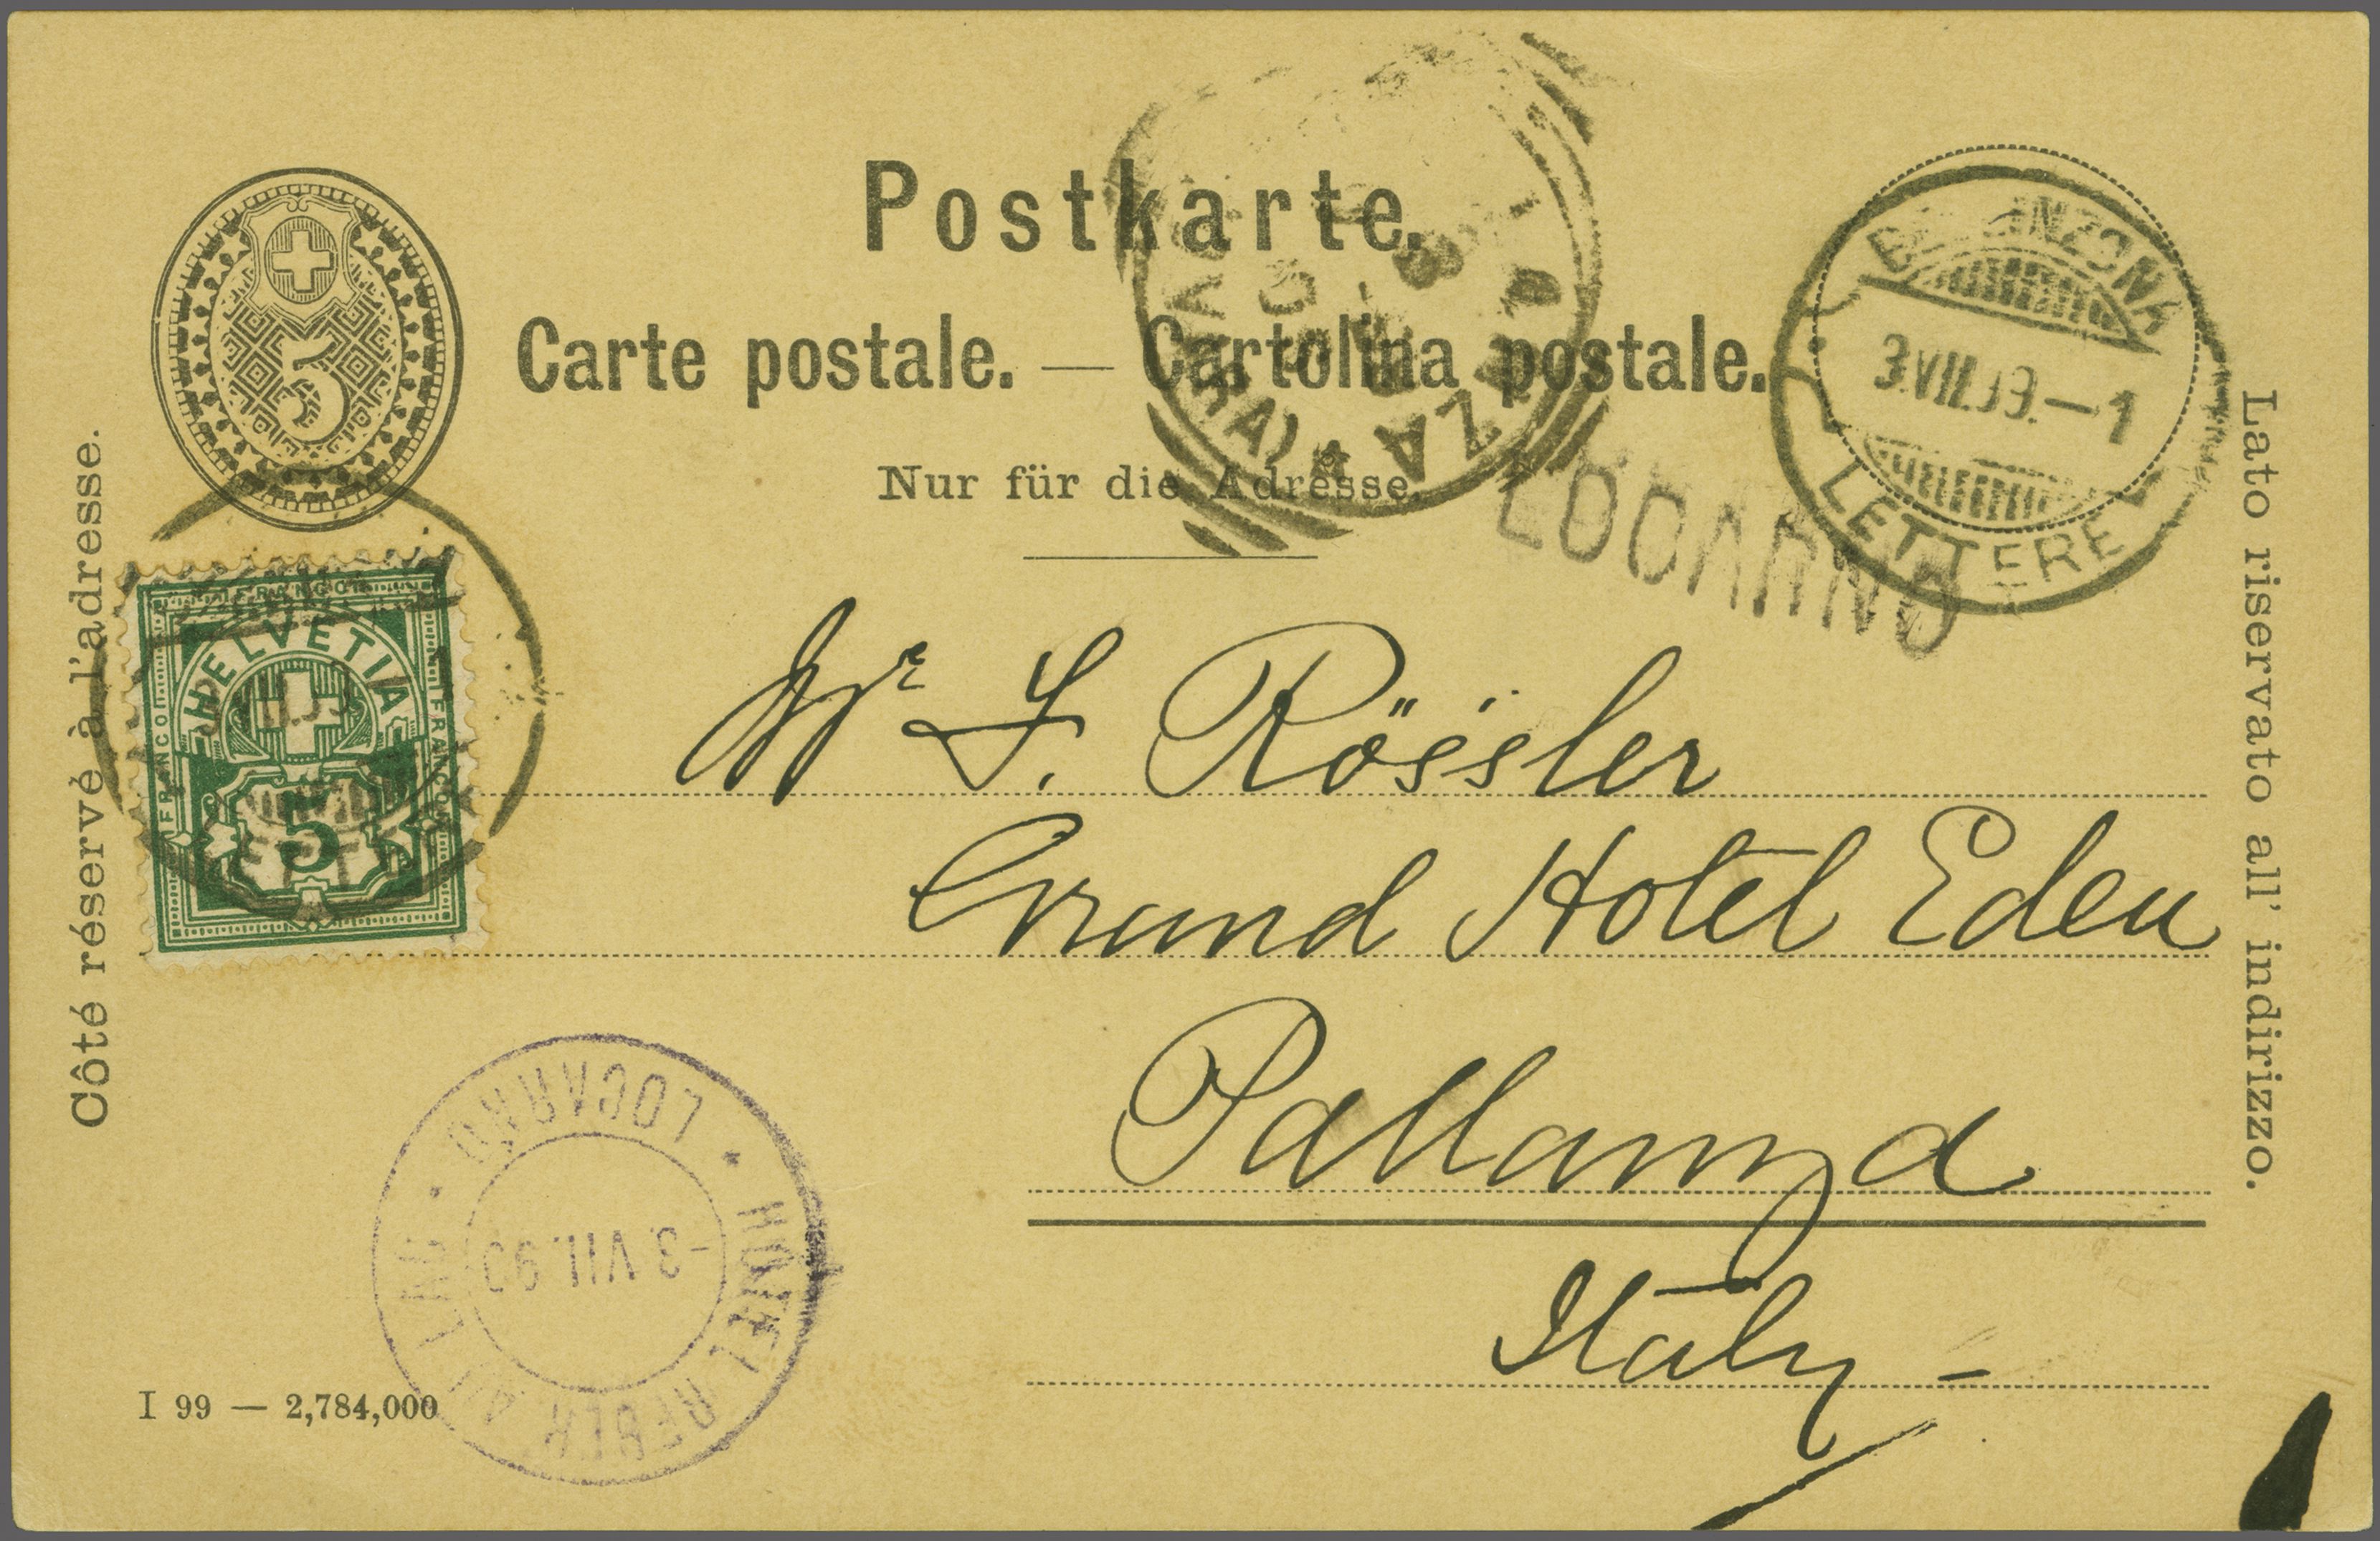 Postkarte.
Carte postale. — Cartolina postale.
Nur für die Adresse.
Côté réservé à l'adresse.
Lato riservato all' indirizzo.
5
FRANCO
HELVETIA
FRANCO
FRANCO
5
BELLINZONA
3.VII.99.—1
LETTERE
LOCARNO
Mr L. Rössler
Grand Hotel Eden
Pallanza
Italy -
LOCARNO
HOTEL REBER AU LAC
-3.VII.99
I 99 — 2,784,000